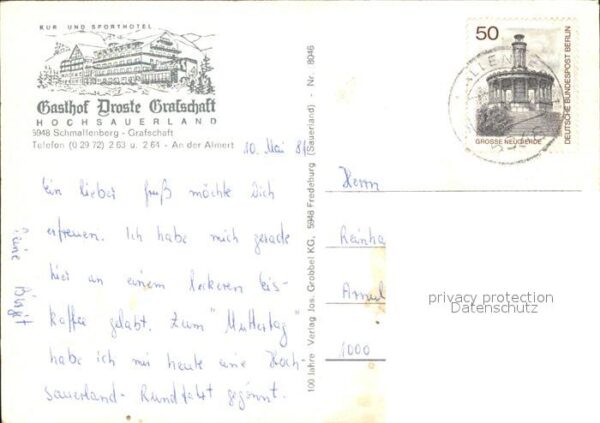 KUR UND SPORTHOTEL
Gasthof Droste Grafschaft
HOCHSAUERLAND
5948 Schmallenberg - Grafschaft
Telefon (0 29 72) 2 63 u. 2 64 - An der Almert
10. Mai 81
Ein lieber Gruß möchte Dich
erfreuen. Ich habe mich gerade
hier an einem leckeren Eis-
kaffee gelabt. Zum "Muttertag"
habe ich mir heute eine Hoch-
sauerland-Rundfahrt gegönnt.
Deine Birgit
100 Jahre Verlag Jos. Grobbel KG, 5948 Fredeburg (Sauerland) - Nr. 8046
50
GROSSE NEUGIERDE
DEUTSCHE BUNDESPOST BERLIN
Herrn
Reinha
1000
privacy protection
Datenschutz